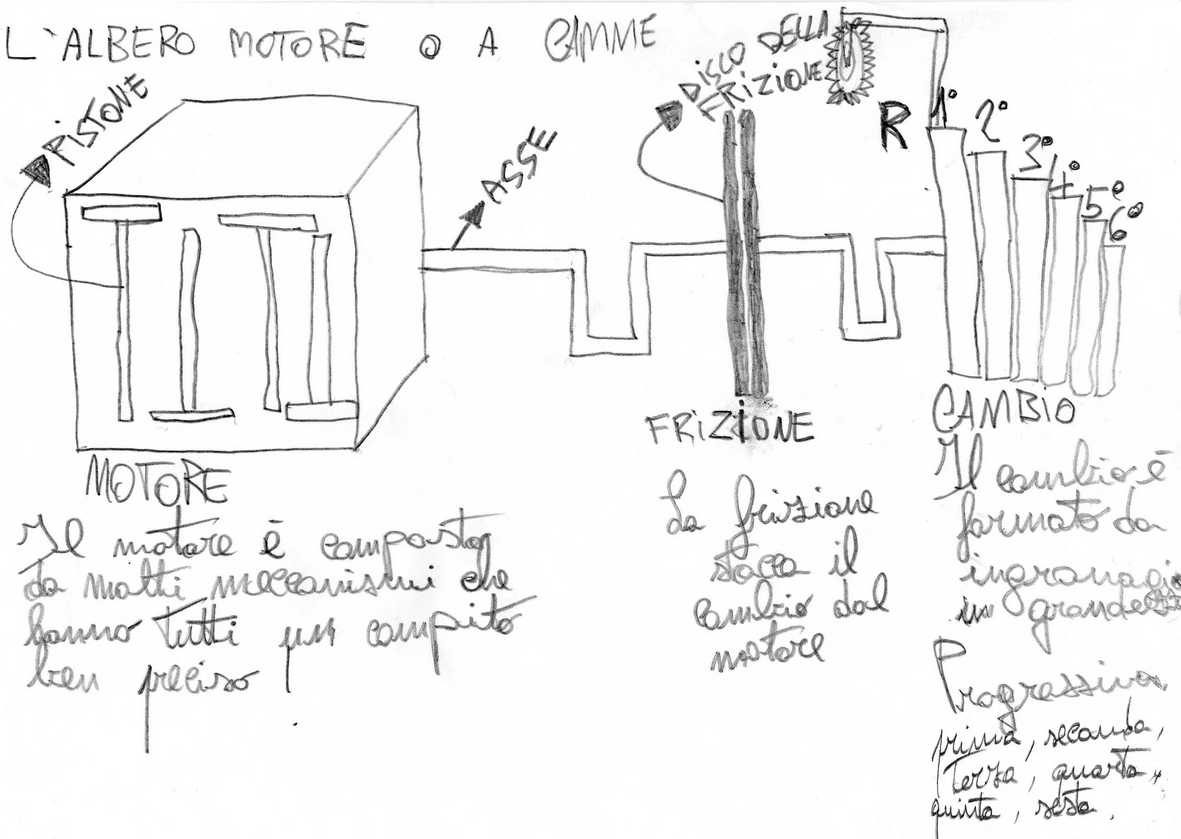 L'ALBERO MOTORE O A CAMME
PISTONE
ASSE
DISCO DELLA
FRIZIONE
R
1°
2°
3°
4°
5°
6°
MOTORE
Il motore è composto
da molti meccanismi che
hanno tutti un compito
ben preciso
FRIZIONE
La frizione
stacca il
cambio dal
motore
CAMBIO
Il cambio è
formato da
ingranagi
in grandezza
Progressiva,
prima, seconda,
terza, quarta,
quinta, sesta.